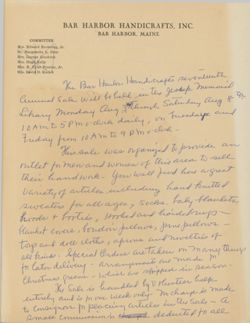 BAR HARBOR HANDICRAFTS, INC.
BAR HARBOR, MAINE
COMMITTEE
The Bar Harbor Handicrafts seventeenth
Annual Sale will be held in the Jesup Memorial
Library Monday Aug Saturday Aug 8
10 A.M to 5 P.M daily, on Tuesday and
Friday from 10 A.M to 9 P.M
This sale was organized to provide an
outlet for men and women of this area to sell
their handiwork. You will find here a great
variety of articles including hand knitted
sweaters for all ages, socks, baby blankets,
hoods + booties, hooked and braided rugs -
blanket covers, boudoir pillows, pine pillows
toys and doll clothes, aprons and novelties of
all kinds. Special orders are taken on many things
for later delivery - arrangements are made for
Christmas greens - which are shipped in season
The Sale is handled by Volunteer help
entirely and is for one week only. No charge is made
to consignors for placing articles in the Sale - A
small commission is deducted to all